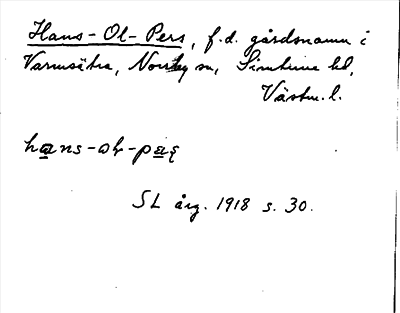 Hans-Ol-Pers, f.d. gårdsnamn i
Varmsätra, Norrby sn, Simtuna hd,
Västm. l.
hans-ol-pæs
SL årg. 1918 s. 30.